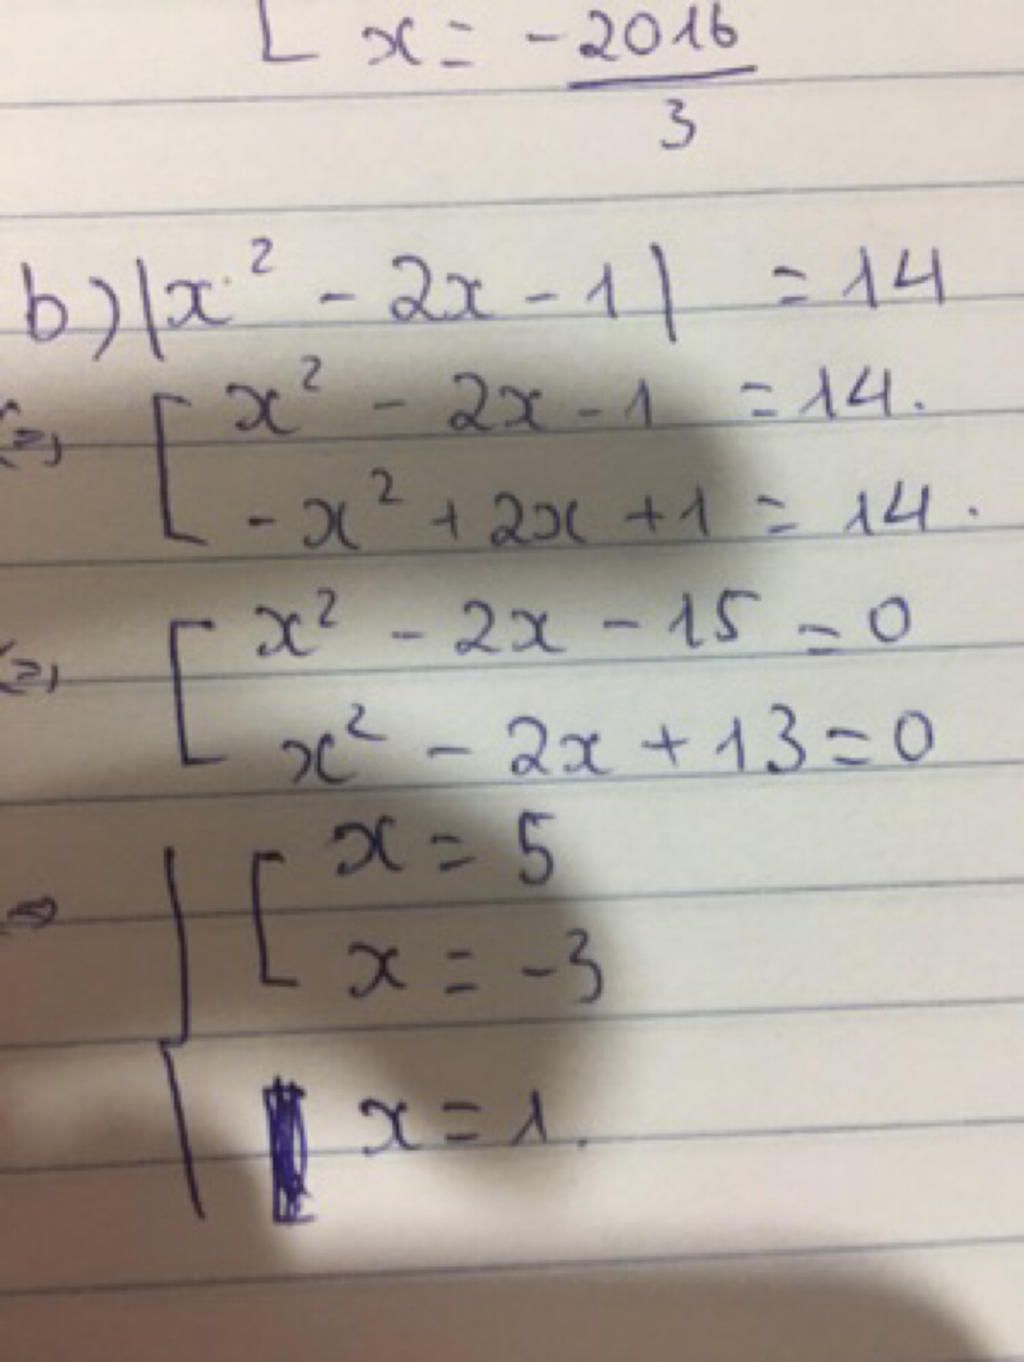 [ x = -2016/3
b) |x² - 2x - 1| = 14
(=) [ x² - 2x - 1 = 14.
-x² + 2x + 1 = 14.
(=) [ x² - 2x - 15 = 0
x² - 2x + 13 = 0
[ x = 5
x = -3
x = 1.